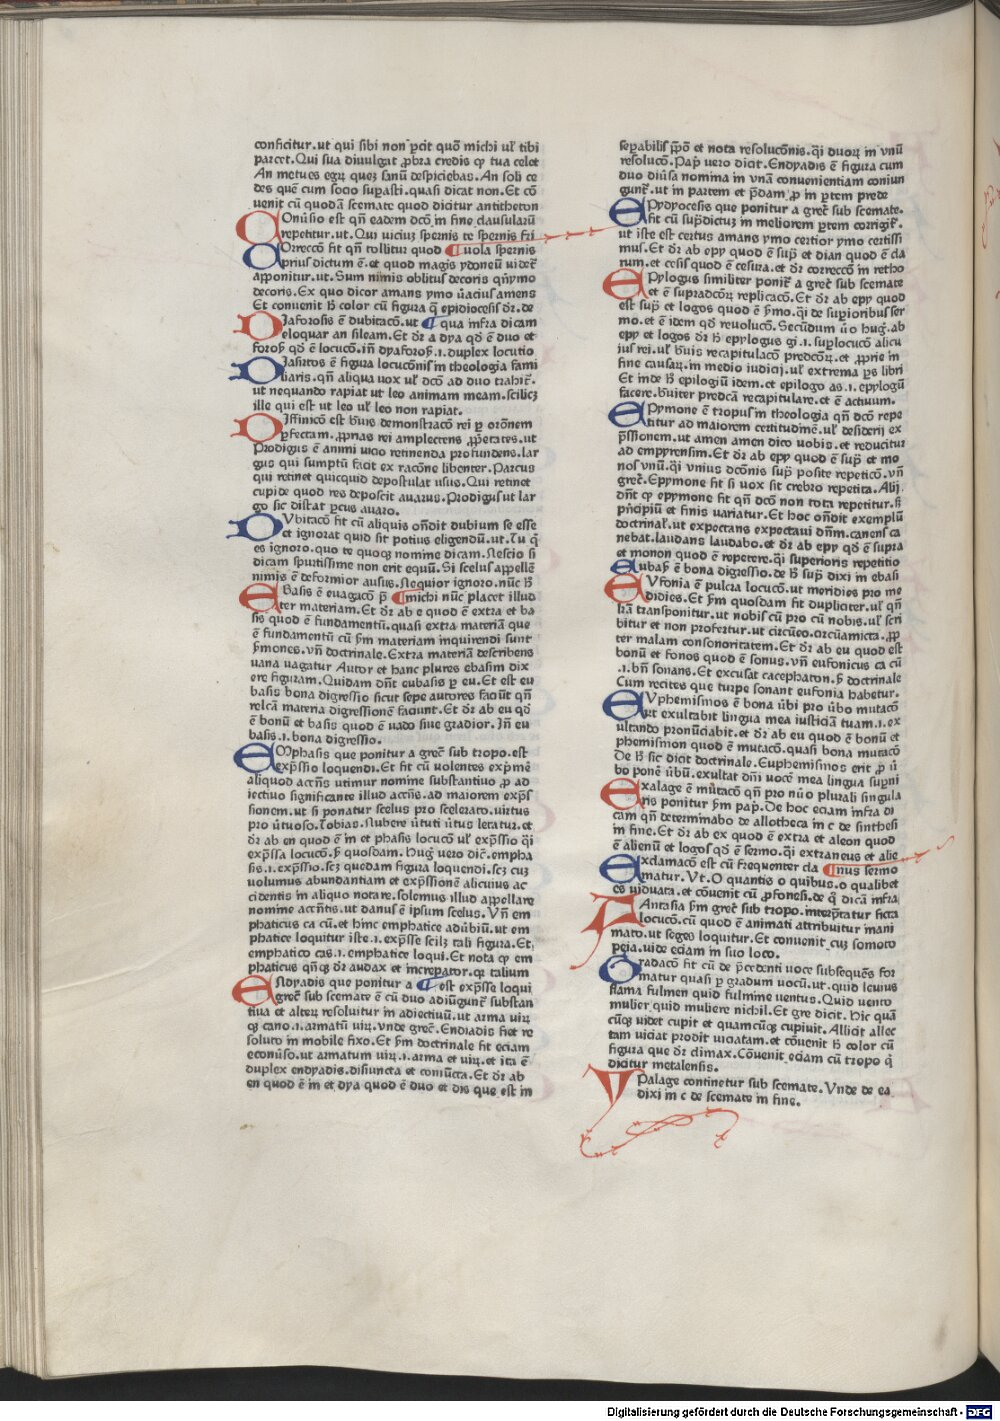 conficitur.ut qui sibi non ꝑcit quõ michi uł tibi
parcet.Qui sua diuulgat ꝓbra credis ꝙ tua celet
An metues egꝝ quez sanũ despiciebas.An soli ce
des quẽ cum socio supasti.quasi dicat non.Et cõ
uenit cũ quodã scemate quod dicitur antitheton
COnũsio est qñ eadem dcõ in fine clausularũ
repetitur.ut.Qui uicius spernis te spernis fri
COrreccõ fit qñ tollitur quod ¶uola spernis
aprius dictum ẽ.et quod magis ydoneũ uidet᷑
apponitur.ut.Sum nimis oblitus decoris qñymo
decoris.Ex quo dicor amans ymo ũacius amens
Et conuenit ħ color cũ figura q̃ epidiocesis dr̃.de
DIaforosis ẽ dubitacõ.ut ¶qua infra dicam
eloquar an sileam.Et dr̃ a dya qd̃ ẽ duo et
foros qd̃ ẽ locucõ.iñ dyaforos.i.duplex locutio
DIasirtos ẽ figura locucõnis in theologia fami
liaris.qñ aliqua uox uł dcõ ad duo trahit᷑.
ut nequando rapiat ut leo animam meam.scilicz
ille qui est ut leo uł leo non rapiat.
DIffinicõ est ħuis demonstracõ rei ꝑ orõnem
ꝑfectam.ꝓprias rei amplectens ꝓpetates.ut
Prodigus ẽ animi uicio retinenda profundens.lar
gus qui sumptũ facit ex racõne libenter.Parcus
qui retinet quicquid depostulat usus.Qui retinet
cupide quod res deposcit auarus.Prodigus ut lar
go sic distat ꝑcus auaro.
DVbitacõ fit cũ aliquis oñdit dubium se esse
et ignorat quid sit potius eligendũ.ut.Tu q̃
es ignoro.quo te quoqꝫ nomine dicam.Nescio si
dicam spurtissime non erit equũ.Si scelus appellẽ
nimis ẽ deformior ausus.Nequior ignoro.nũc ħ
EBasis ẽ euagacõ p̃ ¶michi nũc placet illud
ter materiam.Et dr̃ ab e quod ẽ extra et ba
sis quod ẽ fundamentũ.quasi extra materiã que
ẽ fundamentũ cũ ẜm materiam inquirendi sunt
ẜmones.vñ doctrinale.Extra materiã describens
uana uagatur Autor et hanc plures ebasim dix
ere figuram.Quidam dñt eubasis ꝑ eu.Et est eu
basis bona digressio sicut sepe autores faciũt qñ
relcã materia digressionẽ faciunt.Et dr̃ ab eu qd̃
ẽ bonũ et basis quod ẽ uado siue gradior.Iñ eu
basis.i.bona digressio.
EMphasis que ponitur a grec̃ sub tropo.est
exp̃ssio loquendi.Et fit cũ uolentes exp̃mẽ
aliquod accñs utimur nomine substantiuo ꝓ ad
iectiuo significante illud accñs.ad maiorem exp̃s
sionem.ut si ponatur scelus pro scelerato.uirtus
pro ũtuoso.Tobias.Nubere ũtuti ũtus letatur.et
dr̃ ab en quod ẽ in et phasis locucõ uł exp̃ssio q̃i
exp̃ssa locucõ.ẜ quosdam.Hug̃ uero dic̃.empha
sis.i.exp̃ssio.scz quedam figura loquendi.scz cuz
uolumus abundantiam et exp̃ssionẽ alicuius ac
cidentis in aliquo notare.solemus illud appellare
nomine accñtis.ut danus ẽ ipsum scelus.Vñ em
phaticus ca cũ.et hinc emphatice adũbiũ.ut em
phatice loquitur iste.i.exp̃sse scilz tali figura.Et
emphatico cas.i.emphatice loqui.Et nota ꝙ em
phaticus qñqꝫ dr̃ audax et increpator.qꝫ talium
ENdyadis que ponitur a ¶est exp̃sse loqui
grec̃ sub scemate ẽ cũ duo adiũgunt᷑ substan
tiua et alteꝝ resoluitur in adiectiuũ.ut arma uirũ
qꝫ cano.i.armatũ uirũ.vnde grec̃.Endiadis fiet re
soluto in mobile fixo.Et ẜm doctrinale fit eciam
econũso.ut armatum uirũ.i.arma et uirũ.et ita ẽ
duplex endyadis.disiuncta et coniũcta.Et dr̃ ab
en quod ẽ in et dya quod ẽ duo et dis que est in
sepabilis p̃põ et nota resolucõnis.q̃i duoꝝ in vnũ
resolucõ.Pap̃ uero dicit.Endyadis ẽ figura cum
duo diũsa nomina in vnã conuenientiam coniun
gunt᷑.ut in partem et p̃dam ꝓ in ꝑtem prede
EPydyocesis que ponitur a grec̃ sub scemate.
fit cũ sup̃dictuz in meliorem ꝑtem corrigit᷑.
ut iste est certus amans ymo certior ymo certissi
mus.Et dr̃ ab epy quod ẽ sup̃ et dian quod ẽ cla
rum.et cesis quod ẽ cesura.et dr̃ correccõ in retho
EPylogus similiter ponit᷑ a grec̃ sub scemate
et ẽ supradcõꝝ replicacõ.Et dr̃ ab epy quod
est sup̃ et logos quod ẽ ẜmo.q̃i de supioribus ser
mo.et ẽ idem qd̃ reuolucõ.Secũdum ũo hug̃.ab
epy et logos dr̃ ħ epylogus gi.i.suplocucõ alicu
ius rei.uł ħuis recapitulacõ predcõꝝ.et ꝓprie in
fine causaꝝ.in medio iudicij.uł extrema ꝑs libri
Et inde ħ epilogiũ idem.et epilogo as.i.epylogũ
facere.ħuiter predcã recapitulare.et ẽ actiuum.
EPymone ẽ tropus in theologia qñ dcõ repe
titur ad maiorem certitudinẽ.uł desiderij ex
p̃ssionem.ut amen amen dico uobis.et reducitur
ad empyrensim.Et dr̃ ab epy quod ẽ sup̃ et mo
nos vnũ.q̃i vnius dcõnis sup̃ posite repeticõ.vñ
grec̃.Epymone fit si uox sit crebro repetita.Alij
dñt ꝙ epymone fit qñ dcõ non tota repetitur.ẜ
p̃ncipiũ et finis uariatur.Et hoc oñdit exemplũ
doctrinał.ut expectans expectaui dñm.canens ca
nebat.laudans laudabo.et dr̃ ab epy qd̃ ẽ supra
et monon quod ẽ repetere.q̃i superioris repetitio
Eubas̃ ẽ bona digressio.de ħ sup̃ dixi in ebasi
EVfonia ẽ pulcra locucõ.ut meridies pro me
didies.Et ẜm quosdam fit dupliciter.uł qñ
lr̃ã transponitur.ut nobis cũ pro cũ nobis.uł scri
bitur et non profertur.ut circũeo.circũamicta.ꝓp
ter malam consonoritatem.Et dr̃ ab eu quod est
bonũ et fonos quod ẽ sonus.vñ eufonicus ca cũ
.i.bñ sonans.Et excusat cacephaton.ẜ doctrinale
Cum recites que turpe sonant eufonia habetur.
EVphemismos ẽ bona ũbi pro ũbo mutacõ
ut exultabit lingua mea iusticiã tuam.i.ex
ultando pronũciabit.et dr̃ ab eu quod ẽ bonũ et
phemismon quod ẽ mutacõ.quasi bona mutacõ
De ħ sic dicit doctrinale.Euphemismos erit ꝓ ũ
bo ponẽ ũbũ.exultat dñi vocẽ mea lingua sup̃ni
Exalage ẽ mũtacõ qñ pro nũo plurali singula
ris ponitur ẜm pap̃.De hoc eciam infra di
cam qñ determinabo de allotheca in c de sinthesi
in fine.Et dr̃ ab ex quod ẽ extra et aleon quod
ẽ alienũ et logos qd̃ ẽ sermo.q̃i extraneus et alie
Exclamacõ est cũ frequenter cla ¶nus sermo
matur.Vt.O quantis o quibus.o qualibet
es uiduata.et cõuenit cũ ꝓfonesi.de q̃ dicã infra
FAntasia ẜm grec̃ sub tropo.interp̃tatur ficta
locucõ.cũ quod ẽ animati attribuitur inani
mato.ut seges loquitur.Et conuenit cuz somoto
peia.uide eciam in suo loco.
Gradacõ fit cũ de p̃cedenti uoce subsequẽs for
matur quasi ꝑ gradum uocũ.ut.quid leuius
flama fulmen quid fulmine uentus.Quid uento
mulier quid muliere nichil.Et gre dicit.Hic quã
cũqꝫ uidet cupit et quamcũqꝫ cupiuit.Allicit allec
tam uiciat prodit uiciatam.et cõuenit ħ color cũ
figura que dr̃ climax.Cõuenit eciam cũ tropo q̃
dicitur metalensis.
YPalage continetur sub scemate.Vnde de ea
dixi in c de scemate in fine.
Digitalisierung gefördert durch die Deutsche Forschungsgemeinschaft - DFG